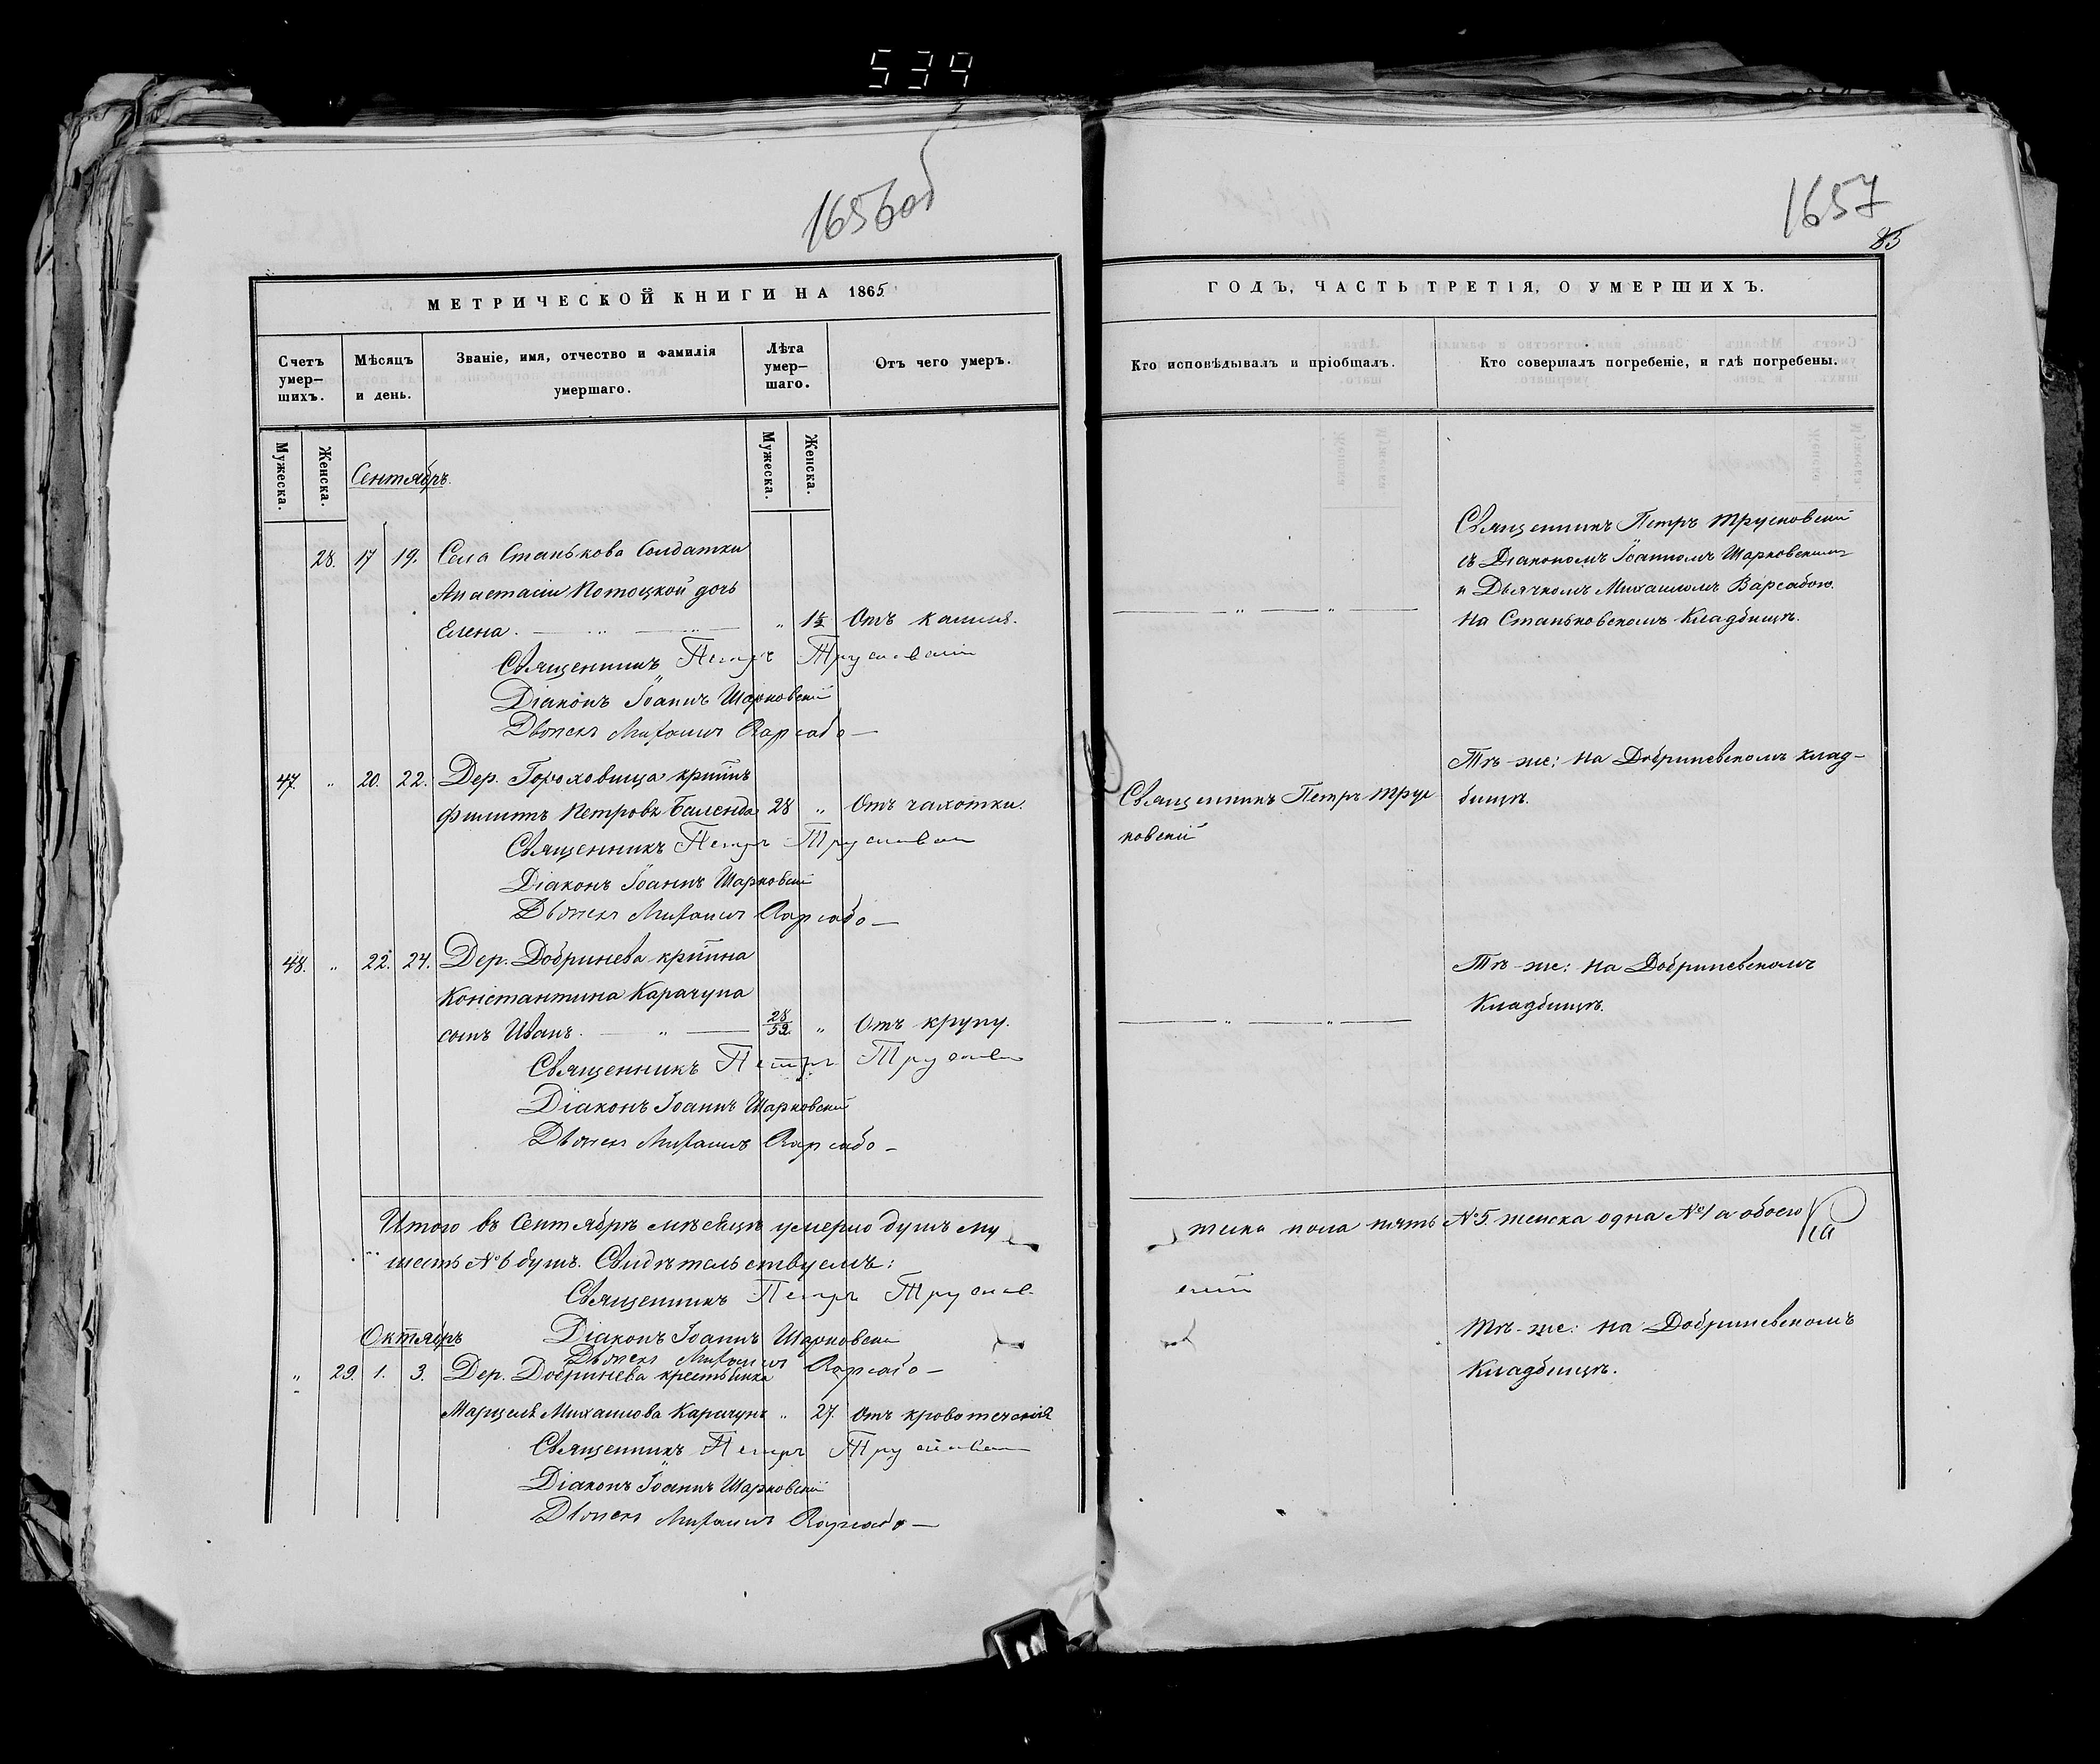 539
1656об
МЕТРИЧЕСКОЙ КНИГИ НА 1865
Счетъ умер-шихъ.
Мѣсяцъ и день.
Званіе, имя, отчество и фамилія умершаго.
Лѣта умер-шаго.
Отъ чего умеръ.
Мужеска.
Женска.
Мужеска.
Женска.
Сентябрь.
28. 17 19. Села Станькова Солдатки
Анастасіи Потоцкой дочь
Елена. " 1½ Отъ кашля.
Священникъ Петръ Трусковскій
Діаконъ Іоаннъ Шарковскій
Дьячекъ Михаилъ Варсабо
47. " 20. 22. Дер. Гороховища кр͞тинъ
Филиппъ Петровъ Баленда 28 " Отъ чахотки.
Священникъ Петръ Трусковскій
Діаконъ Іоаннъ Шарковскій
Дьячекъ Михаилъ Варсабо
48. " 22. 24. Дер. Добринева кр͞тина
Константина Карачуна
сынъ Иванъ. " 28/52. " Отъ крупу.
Священникъ Петръ Трусковскій
Діаконъ Іоаннъ Шарковскій
Дьячекъ Михаилъ Варсабо
Итого въ Сентябрѣ мѣсяцѣ умерло душъ му
шесть №6 душъ. Свидѣтельствуемъ:
Священникъ Петръ Трусков
Октябрь Діаконъ Іоаннъ Шарковскій
Дьячекъ Михаилъ Варсабо
" 29. 1. 3. Дер. Добринева крестьянка
Марцеля Михаилова Карачунъ " 27. Отъ кровотеченія
Священникъ Петръ Трусковскій
Діаконъ Іоаннъ Шарковскій
Дьячекъ Михаилъ Варсабо
1657
83
ГОДЪ, ЧАСТЬ ТРЕТІЯ, О УМЕРШИХЪ.
Кто исповѣдывалъ и пріобщалъ.
Кто совершалъ погребеніе, и гдѣ погребены.
Священникъ Петръ Трусковскій
съ Діакономъ Іоанномъ Шарковскимъ
и Дьячкомъ Михаиломъ Варсабою.
На Станьковскомъ Кладбищѣ.
Тѣ-же: на Добриневскомъ клад-
бищѣ.
Священникъ Петръ Трус
ковскій
Тѣ-же: на Добриневскомъ
Кладбищѣ.
жска пола пять №5. женска одна №1 а обоего
скій
Тѣ-же: на Добриневскомъ
Кладбищѣ.